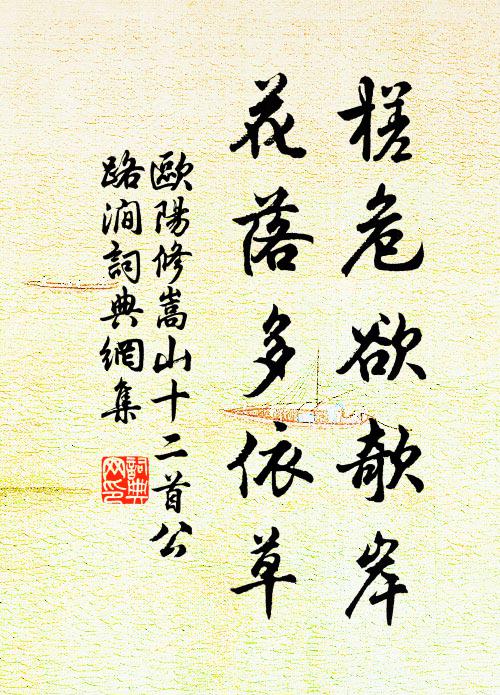 槎危欲欹岸
花落多依草
歐陽修嵩山十二首公
路澗詞典網集
詞典
网印